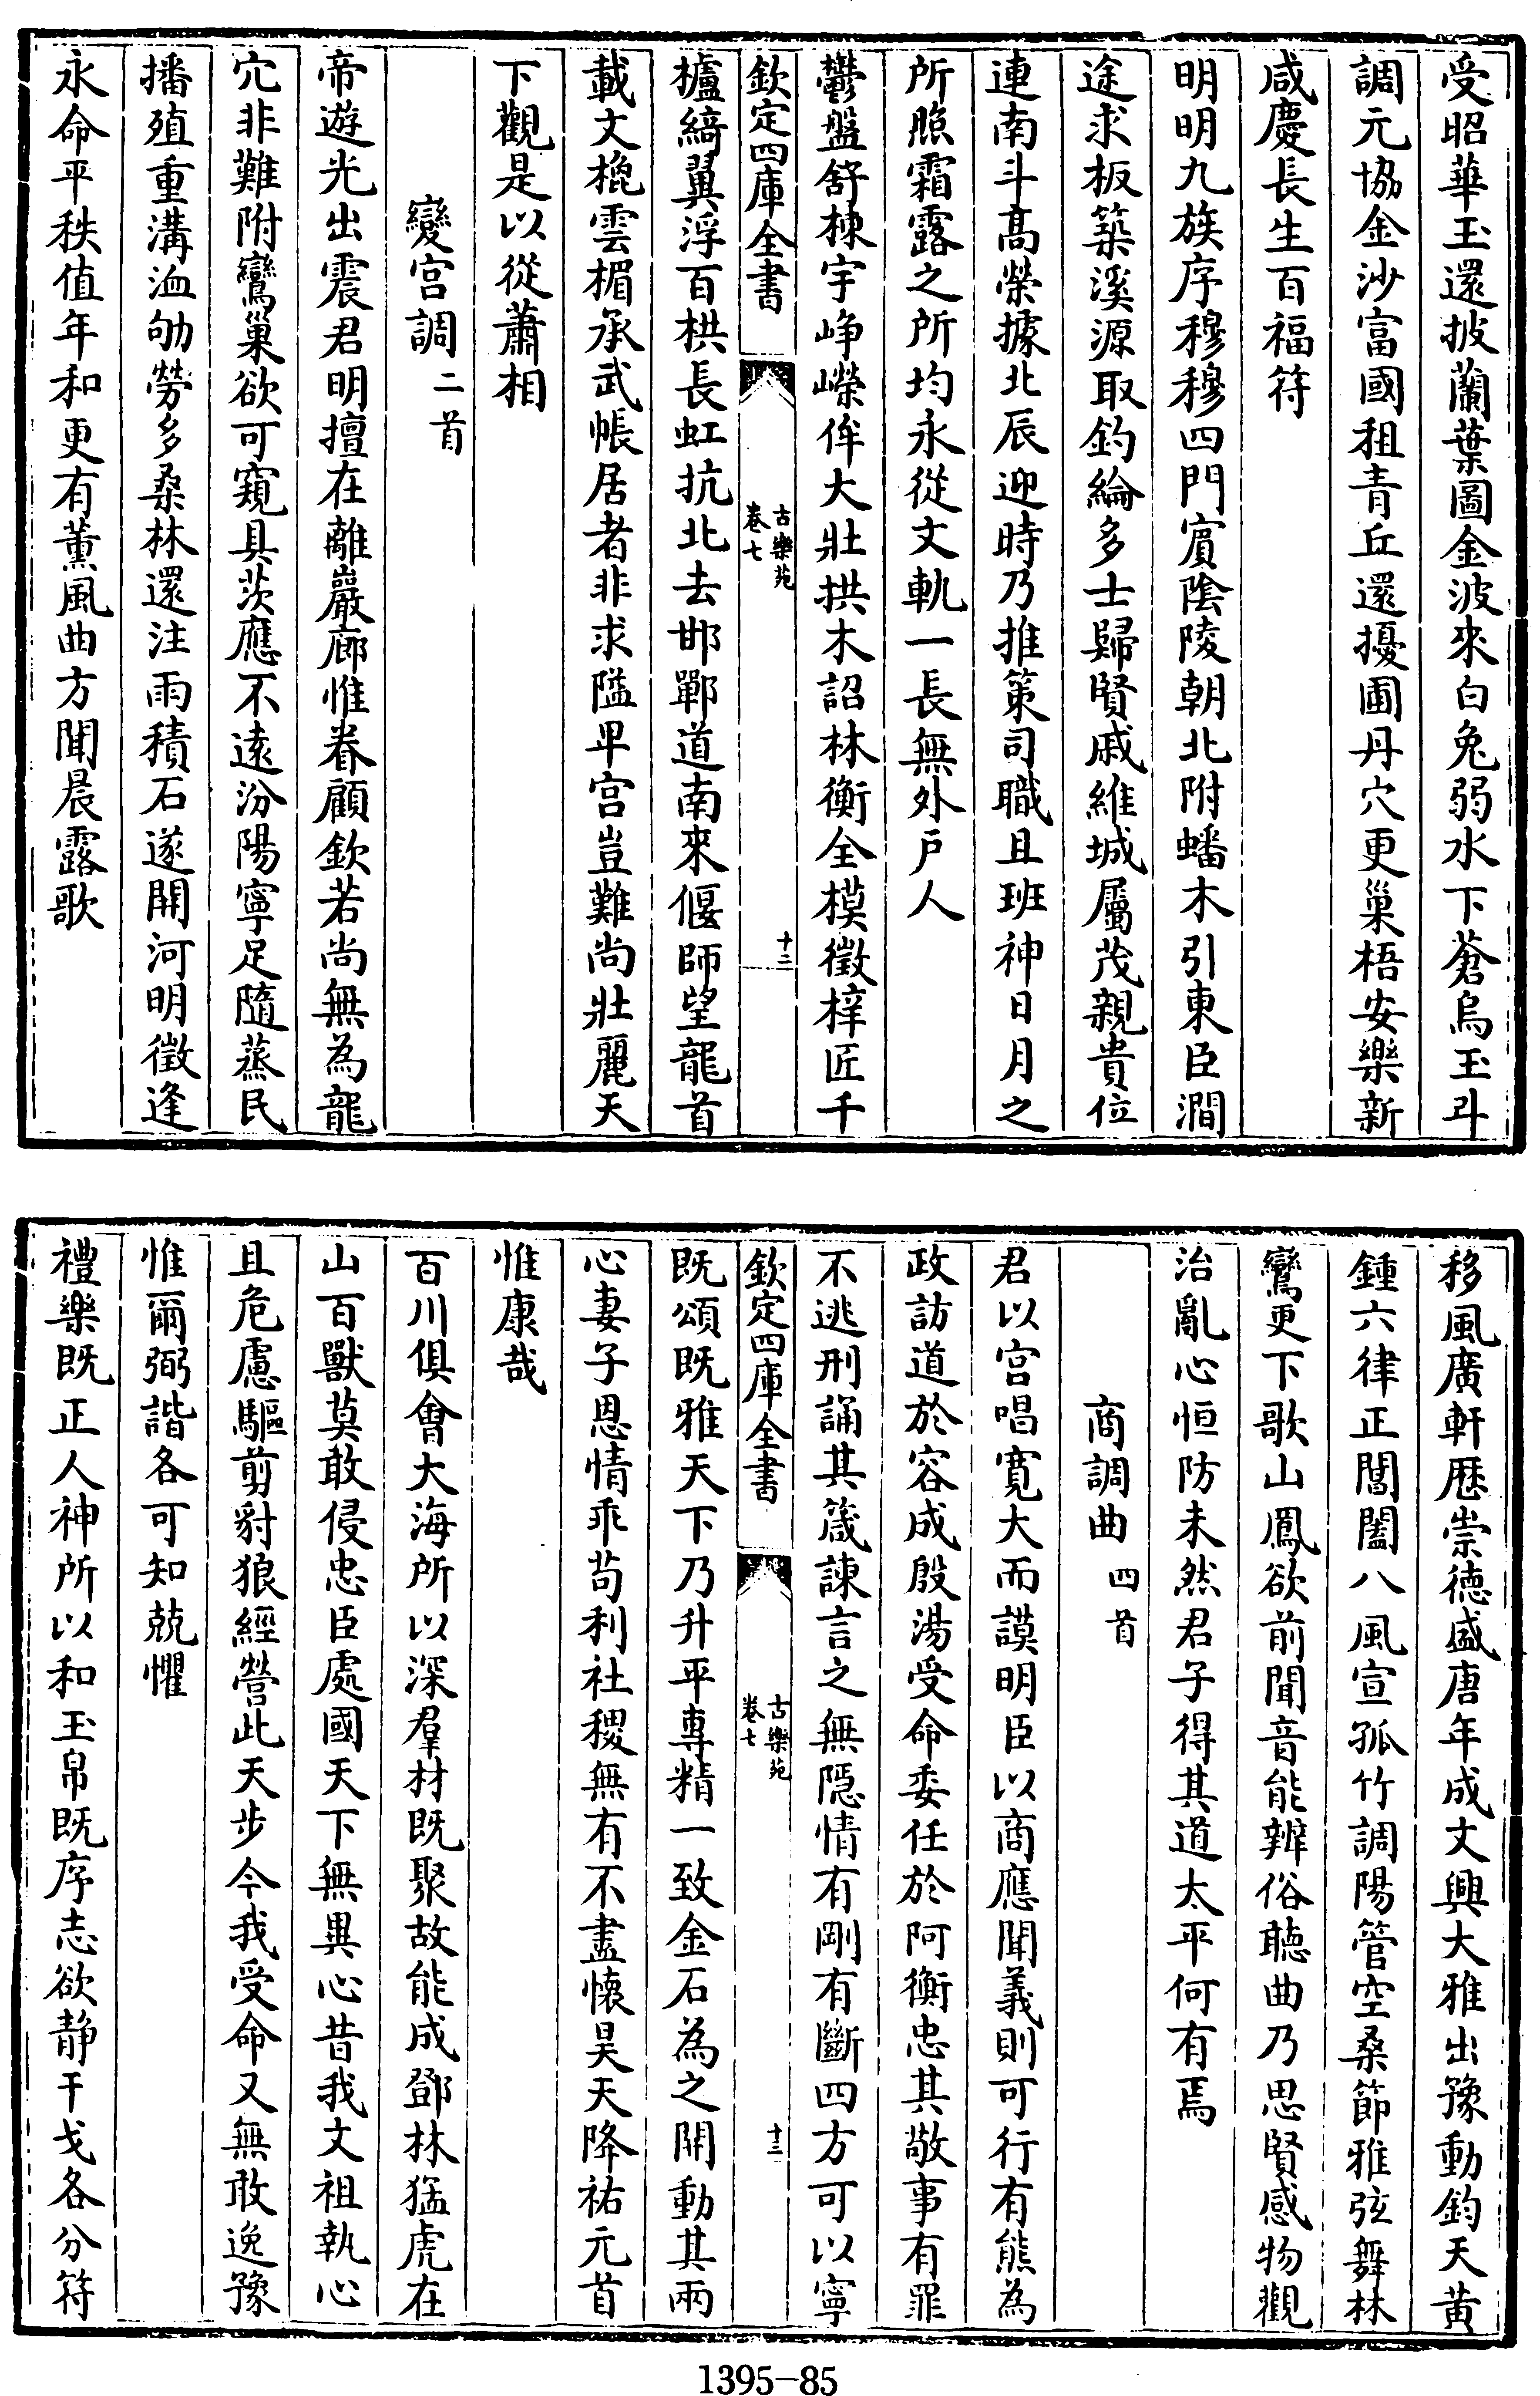 受昭華玉還披蘭葉圖金波來白兔弱水下蒼烏玉斗
調元協金沙富國租青丘還擾圃丹穴更巢梧安樂新
咸慶長生百福符
明明九族序穆穆四門賓陰陵朝北附蟠木引東臣澗
途求板築溪源取釣綸多士歸賢戚維城屬茂親貴位
連南斗高榮據北辰迎時乃推策司職且班神日月之
所照霜露之所均永從文軌一長無外戶人
鬱盤舒棟宇崢嶸侔大壯拱木詔林衡全模徵梓匠千
欽定四庫全書
古樂苑
卷七
十二
櫨綺翼浮百栱長虹抗北去邯鄲道南來偃師望龍首
載文㮰雲楣承武帳居者非求隘卑宫豈難尚壯麗天
下觀是以從蕭相
變宫調二首
帝遊光出震君明擅在離巖廊惟眷顧欽若尚無為龍
穴非難附鸞巢欲可窺具茨應不遠汾陽寧足隨蒸民
播殖重溝洫劬勞多桑林還注雨積石遂開河明徵逢
永命平秩值年和更有薰風曲方聞晨露歌
移風廣軒厯崇德盛唐年成文興大雅出豫動鈞天黄
鍾六律正閶闔八風宣孤竹調陽管空桑節雅弦舞林
鸞更下歌山鳳欲前聞音能辨俗聽曲乃思賢感物觀
治亂心恒防未然君子得其道太平何有焉
商調曲四首
君以宫唱寛大而謨明臣以商應聞義則可行有熊為
政訪道於容成殷湯受命委任於阿衡忠其敬事有罪
不逃刑誦其箴諫言之無隱情有剛有斷四方可以寧
欽定四庫全書
古樂苑
卷七
十三
既頌既雅天下乃升平專精一致金石為之開動其兩
心妻子恩情乖苟利社稷無有不盡懐昊天降祐元首
惟康哉
百川俱會大海所以深羣材既聚故能成鄧林猛虎在
山百獸莫敢侵忠臣處國天下無異心昔我文祖執心
且危慮驅剪豺狼經營此天步今我受命又無敢逸豫
惟爾弼諧各可知兢懼
禮樂既正人神所以和玉帛既序志欲静干戈各分符
1395-85